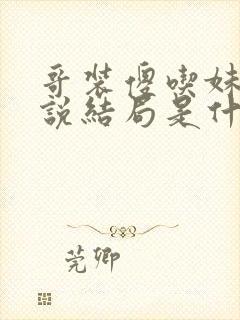 哥装傻喫妹
說結局是什
莞卿